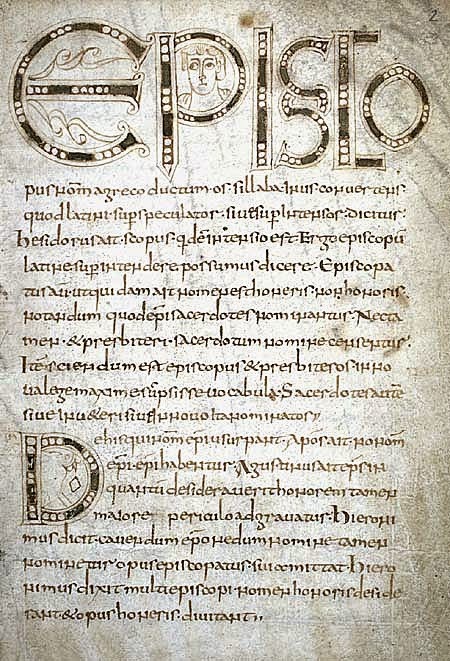 2
EPISCO
pus nom̄ agreco ductum·os·sillaba·inus·conuertens·
quod latini·sup̄speculator·siue sup̄intensor·dicitur·
hesidorus ait·scopus·q̄dē intensio est·Ergo episcopū
latine sup̄intendere possumus dicere·Episcopa
tus aūt ut quidam ait nomen est honeris·non honoris·
notandum quod ep̄i sacerdotes nominantur·Nec ta
men·& presbiteri·sacerdotum nomine consentur·
Itē·sciendum est episcopus & presbiteros in no
ua lege maxime sūpsisse uocabula·Sacerdotes autē
siue in ueteri siue in nouo ita nominatos
De his qui nom̄ ep̄i usurpant·Apos̄ ait·non om̄
ep̄i·ep̄i habentur·Agustinus ait ep̄s in
quantū desiderauerit honorem tamen
maiore periculo adgrauatur·hieroni
mus dicit·cauendum ep̄o ne dum nomine tamen
nominetis·opus episcopatus·sui omittat·hiero
nimus dixit multi episcopi·nomen honoris·deside
rant & opus honeris·diuitant